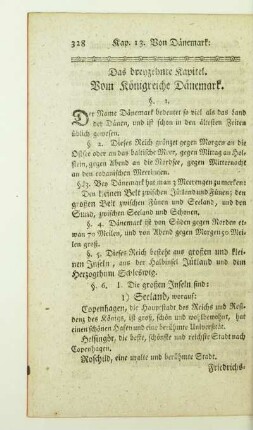 328 Kap. 13. Von Dänemark:
Das dreyzehnte Kapitel.
Vom Königreiche Dänemark.
§. 1.
Der Name Dänemark bedeutet so viel als das Land
der Dänen, und ist schon in den ältesten Zeiten
üblich gewesen.
§. 2. Dieses Reich gränzet gegen Morgen an die
Ostsee oder an das baltische Meer, gegen Mittag an Hol-
stein, gegen Abend an die Nordsee, gegen Mitternacht
an den
§. 3. Bey Dänemark hat man 3 Meerengen zu merken:
Den kleinen Belt zwischen Jütland und Fünen; den
großen Belt zwischen Fünen und Seeland, und
den Sund, zwischen Seeland und Schonen.
§. 4. Dänemark ist von Süden gegen Norden et-
wan 70 Meilen, und von Abend gegen Morgen 50 Mei-
len groß.
§. 5. Dieses Reich besteht aus großen und klei-
nen Inseln, aus der Halbinsel Jütland und dem
Herzogthum Schleswig.
§. 6. I. Die großen Inseln sind:
1) Seeland, worauf:
Copenhagen, die Hauptstadt des Reichs und Resi-
denz des Königs, ist groß, schön und wohlbewohnt, hat
einen schönen Hafen und eine berühmte Universität.
Helsingör, die beste, schönste und reichste Stadt nach
Copenhagen.
Roschild, eine uralte und berühmte Stadt.
Friedrichs-